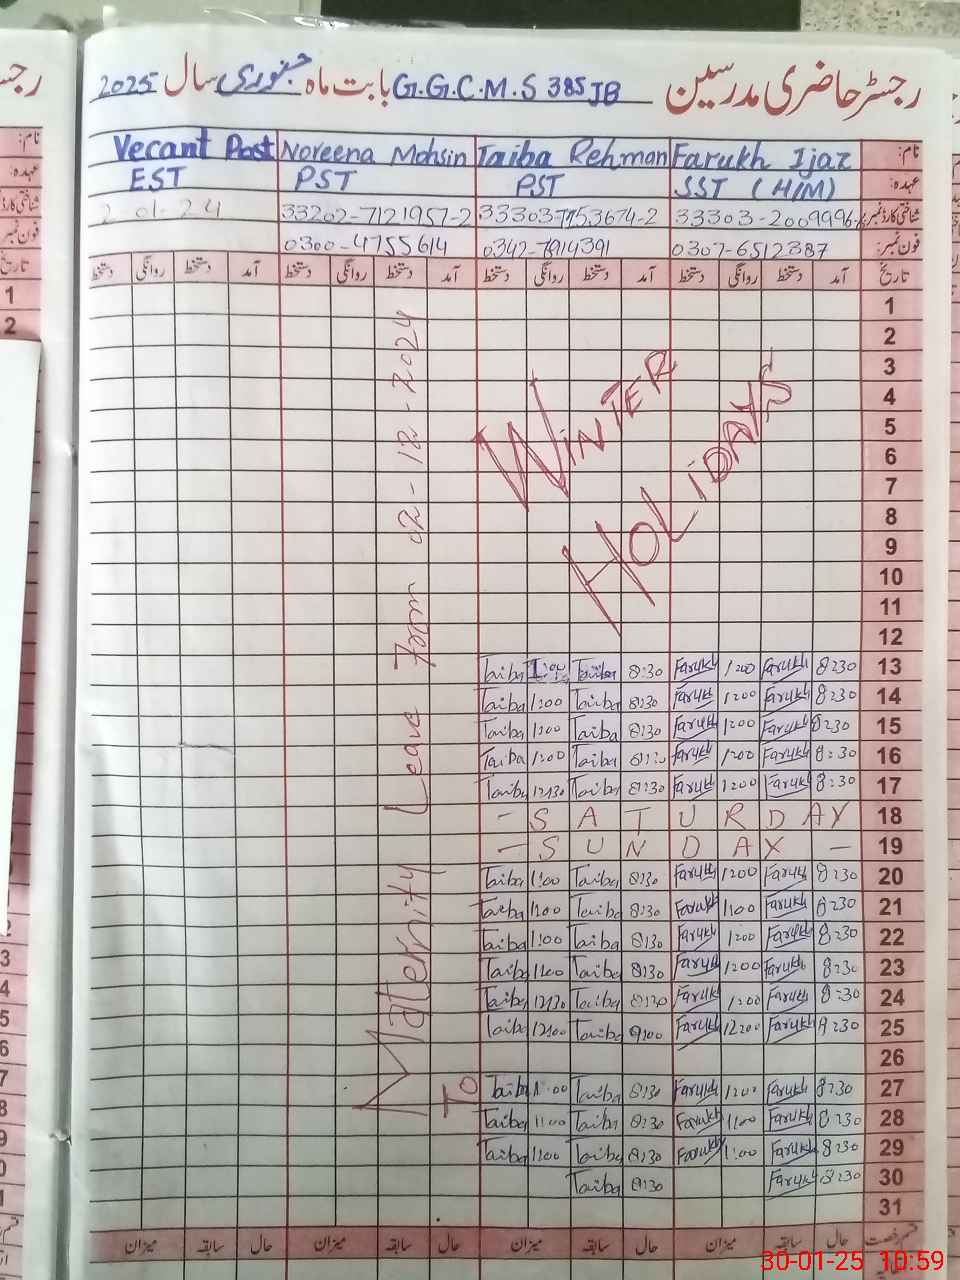 رجسٹر حاضری مدرسین G.G.C.M.S 385 JB بابت ماہ جنوری سال 2025
نام: Farukh Ijaz Taiba Rehman Noreena Mohsin Vecant Post
عہدہ: SST (H/M) PST PST EST
شناختی کارڈ نمبر: 33303-2009996- 33202-7121957-2 2-01-24
فون نمبر: 0307-6512387 0342-7914391 0300-4755614
تاریخ آمد دستخط روانگی دستخط آمد دستخط روانگی دستخط آمد دستخط روانگی دستخط آمد دستخط روانگی دستخط
1
2
3
4
5
6
7
8
9
10
11
12
WINTER
HOLIDAYS
Maternity Leave From 02-12-2024
To
13 8:30 Farukh 1:00 Farukh 8:30 Taiba 1:00 Taiba
14 8:30 Farukh 1:00 Farukh 8:30 Taiba 1:00 Taiba
15 8:30 Farukh 1:00 Farukh 8:30 Taiba 1:00 Taiba
16 8:30 Farukh 1:00 Farukh 8:30 Taiba 1:00 Taiba
17 8:30 Farukh 1:00 Farukh 8:30 Taiba 12:30 Taiba
18 - SATURDAY
19 - SUNDAY -
20 8:30 Farukh 1:00 Farukh 8:30 Taiba 1:00 Taiba
21 8:30 Farukh 1:00 Farukh 8:30 Taiba 1:00 Taiba
22 8:30 Farukh 1:00 Farukh 8:30 Taiba 1:00 Taiba
23 8:30 Farukh 1:00 Farukh 8:30 Taiba 1:00 Taiba
24 8:30 Farukh 1:00 Farukh 8:30 Taiba 12:30 Taiba
25 Farukh 12:00 Farukh 9:00 Taiba 12:00 Taiba
26
27 8:30 Farukh 1:00 Farukh 8:30 Taiba 1:00 Taiba
28 8:30 Farukh 1:00 Farukh 8:30 Taiba 1:00 Taiba
29 8:30 Farukh 1:00 Farukh 8:30 Taiba 1:00 Taiba
30 8:30 Farukh 8:30 Taiba
31
قسم رخصت حال سابقہ میزان حال سابقہ میزان حال سابقہ میزان حال سابقہ میزان
30-01-25 10:59